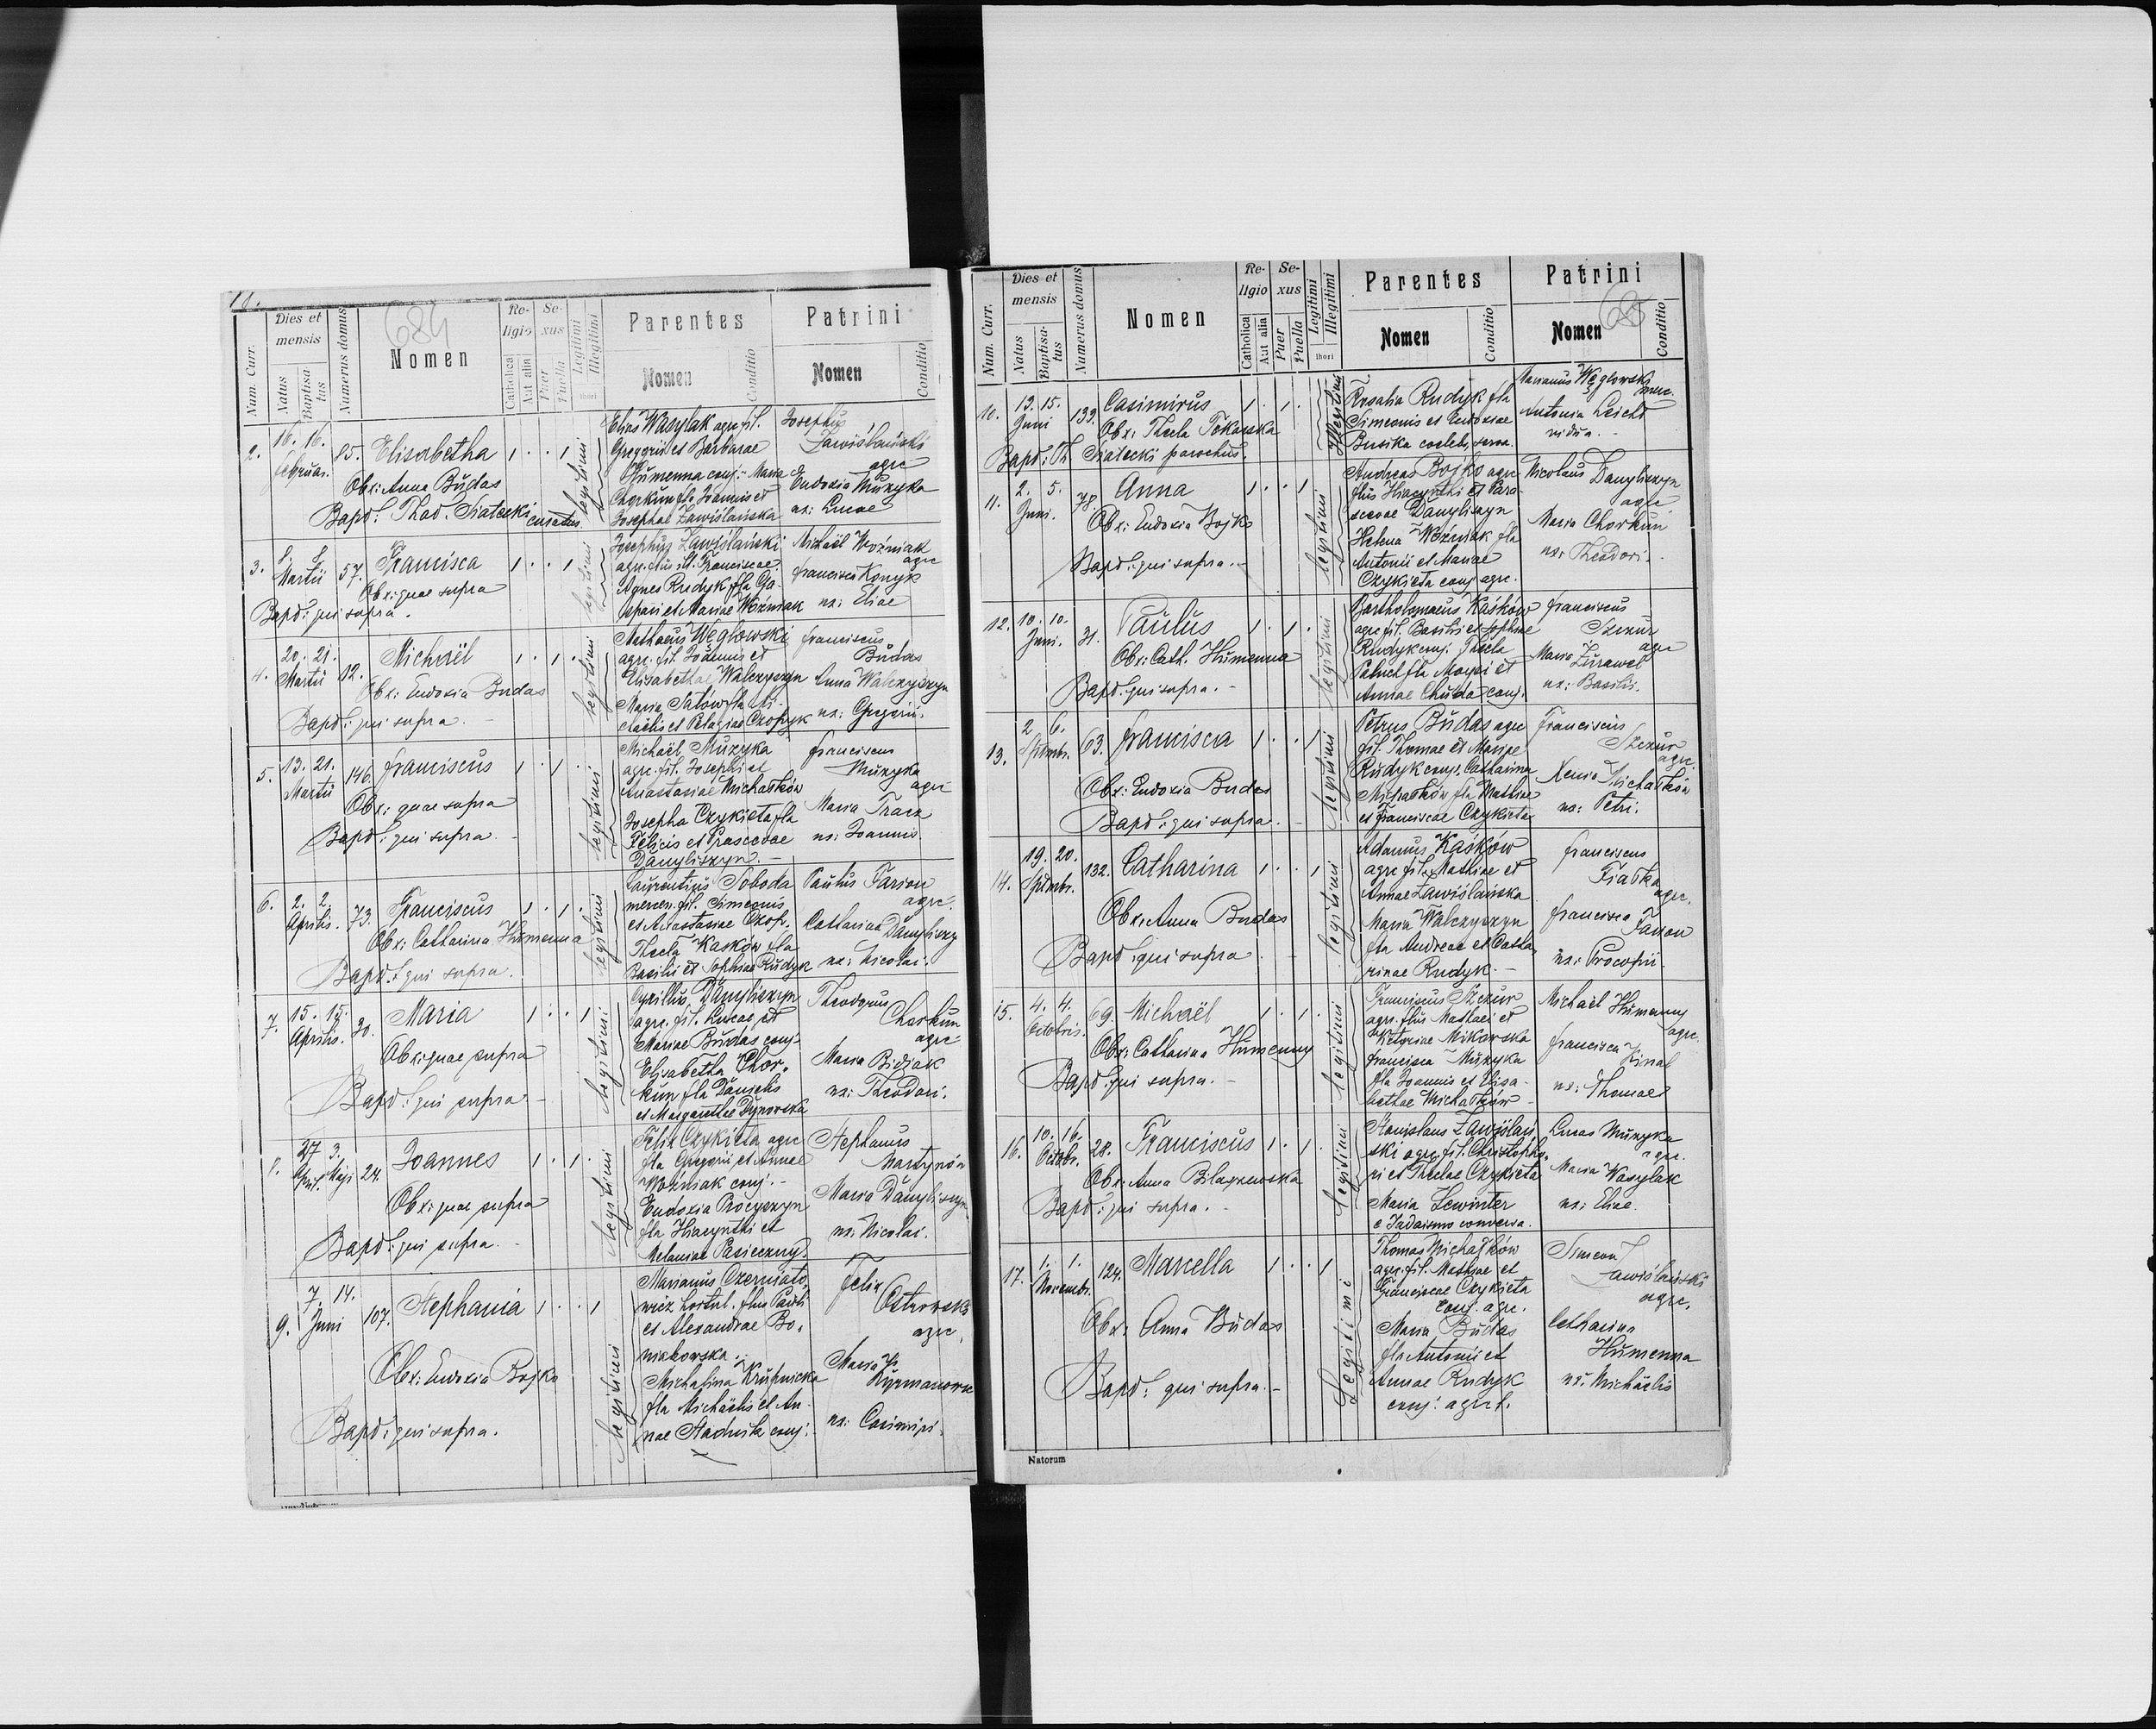 18.
684
Num. Curr.
Dies et mensis
Natus
Baptisatus
Numerus domus
Nomen
Religio
Catholica
Aut alia
Sexus
Puer
Puella
Legitimi
Illegitimi
thori
Parentes
Nomen
Conditio
Patrini
Nomen
Conditio
2. 16. 16. Februar. 85. Elisabetha 1 . . 1 legitimi
Obx: Anna Budas
Bapt: Thad. Siatecki curatus
Elias Wasylak agr. fil.
Gregorii et Barbarae
Humenna conj. Maria
Chorkun fla Joannis et
Josephae Zawiślańska
Josephus
Zawiślański
agrc
Eudoxia Muzyka
ux: Lucae
3. 8. 8. Martii 57. Francisca 1 . . 1 legitimi
Obx: quae supra
Bapt: qui supra.
Josephus Zawiślański
agr. flius ill. Franciscae
Agnes Rudyk fla Ga-
spari et Mariae Woźniak
Michaël Woźniak
agrc
Francisca Konyk
ux: Eliae
4. 20. 21. Martii 12. Michaël 1 . 1 . legitimi
Obx: Eudoxia Budas
Bapt: qui supra.
Mathaeus Węglowski
agrc. fil. Joannis et
Elisabethae Walczyszyn
Maria Sałów fla Mi-
chaelis et Pelagiae Czopyk
Franciscus
Budas
Anna Walczyszyn
ux: Gregorii.
5. 13. 21. Martii 146. Franciscus 1 . 1 . legitimi
Obx: quae supra
Bapt: qui supra.
Michaël Muzyka
agrc. fil. Josephi et
Anastasiae Michałków
Josepha Czykieta fla
Felicis et Parascevae
Danyliszyn.
Franciscus
Muzyka
agrc
Maria Tracz
ux: Joannis
6. 2. 2. Aprilis. 73. Franciscus 1 . 1 . legitimi
Obx: Catharina Humenna
Bapt: qui supra.
Laurentius Soboda
mercen. fil. Simeonis
et Anastasiae Czop.
Thecla Kaśków fla
Basilii et Sophiae Rudyk
Paulus Farion
agrc.
Catharina Danyliszyn
ux: Nicolai.
7. 15. 15. Aprilis. 30. Maria 1 . . 1 legitimi
Obx: quae supra
Bapt: qui supra
Cyrillus Danyliszyn
agrc. fil. Lucae et
Mariae Budas conj.
Elisabetha Chor-
kun fla Danielis
et Margarethae Dynowska
Theodorus
Chorkun
agrc.
Maria Bidziak
ux: Theodori.
8. 27 April. 3. Maji 24. Joannes 1 . 1 . legitimi
Obx: quae supra
Bapt: qui supra.
Felix Czykieta agrc
fls Gregorii et Annae
Woźniak conj.
Eudoxia Procyszyn
fla Hiacynthi et
Melaniae Pasieczny.
Stephanus
Martynów
Maria Danyliszyn
ux: Nicolai.
9. 7. 14. Juni 107. Stephania 1 . . 1 legitimi
Obx: Eudoxia Bojko
Bapt: qui supra.
Marianus Czerniato-
wicz hortul. flius Pauli
et Alexandrae Bo-
niakowska.
Michalina Krupnicka
fla Michaelis et An-
nae Stachula conj:
Felix
Ostrowski
agrc.
Maria
Kyrmanow
ux: Casimiri.
685
Num. Curr.
Dies et mensis
Natus
Baptisatus
Numerus domus
Nomen
Religio
Catholica
Aut alia
Sexus
Puer
Puella
Legitimi
Illegitimi
thori
Parentes
Nomen
Conditio
Patrini
Nomen
Conditio
10. 13. 15. Juni 133. Casimirus 1 . 1 . Illegitimi
Obx: Thecla Tokarska
Bapt: Th. Siatecki parochus.
Rosalia Rudyk fla
Simeonis et Eudoxiae
Busika coelebs, serva.
Marianus Węglowski
merc.
Antonia Leicht
vidua.
11. 2. 5. Juni. 78. Anna 1 . . 1 legitimi
Obx: Eudoxia Bojko
Bapt: qui supra.
Andreas Bojko agrc
flius Hiacynthi et Para-
scevae Danyliszyn
Helena Woźniak fla
Antonii et Mariae
Czykieta conj agrc.
Nicolaus Danyliszyn
agrc
Maria Chorkun
ux: Theodori.
12. 10. 10. Juni. 31. Paulus 1 . 1 . legitimi
Obx: Cath. Humenna
Bapt: qui supra.
Bartholomaeus Kaśków
agrc fil. Basilii et Sophiae
Rudyk conj. Thecla
Paluch fla Moysi et
Annae Chuda conj.
Franciscus
Szczur
agrc
Maria Żurawel
ux: Basilii.
13. 2 6. Septembr. 63. Francisca 1 . . 1 legitimi
Obx: Eudoxia Budas
Bapt: qui supra.
Petrus Budas agrc
fil. Thomae et Mariae
Rudyk conj. Catharina
Michałków fla Mathiae
et Franciscae Czykieta
Franciscus
Szczur
agrc.
Xenia Michałków
ux: Petri.
14. 19. 20. Septembr. 132. Catharina 1 . . 1 legitimi
Obx: Anna Budas
Bapt: qui supra
Adamus Kaśków
agrc fil. Mathiae et
Annae Zawiślańska
Maria Walczyszyn
fla Andreae et Catha-
rinae Rudyk.
Franciscus
Fiałka
agrc.
Francisca
Farion
ux: Procopii
15. 4. 4. Octobris. 69. Michaël 1 . 1 . legitimi
Obx: Catharina Humenny
Bapt: qui supra.
Franciscus Szczur
agr. flius Mathaei et
Victoriae Mikowska
Francisca Muzyka
fla Joannis et Elisa-
bethae Michałków
Michaël Humenny
agrc.
Francisca Kinal
ux: Thomae
16. 10. 16. Octobr. 28. Franciscus 1 . 1 . legitimi
Obx: Anna Bilaszewska
Bapt: qui supra.
Stanislaus Zawiślań-
ski agrc. fil. Christopho-
ri et Theclae Czykieta
Maria Lewinter
e Judaismo conversa.
Lucas Muzyka
agrc.
Maria Wasylak
ux: Eliae.
17. 1. 1. Novembr. 124. Marcella 1 . . 1 Legitimi
Obx: Anna Budas
Bapt: qui supra.
Thomas Michałków
agrc. fil. Mathiae et
Franciscae Czykieta
conj. agrc.
Maria Budas
fla Antonii et
Annae Rudyk
conj: agrc.
Simeon
Zawiślański
agrc.
Catharina
Humenna
ux. Michaëlis
Natorum